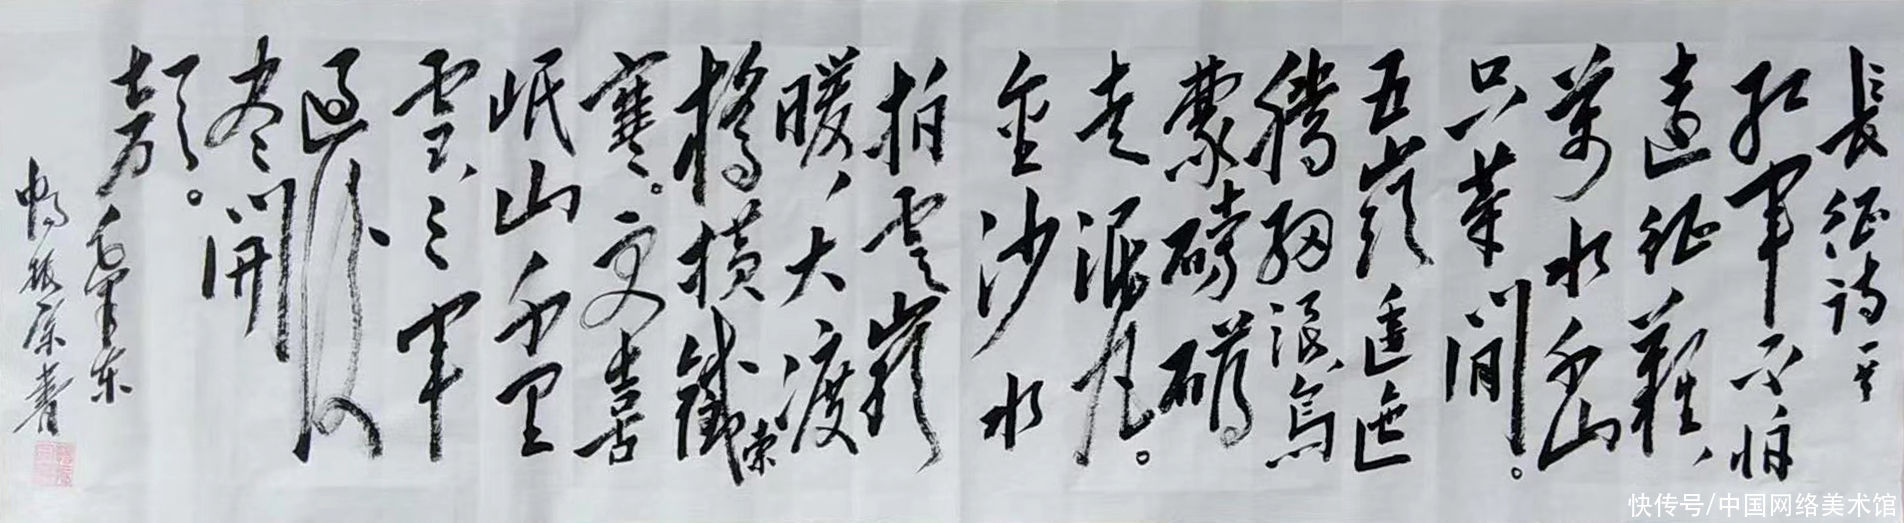 長征詩一首
红軍不怕
遠征難、
萬水千山
只等閒。
五嶺逶迤
騰细浪烏
蒙磅礴
走泥丸。
金沙水
拍雲崖
暖、大渡
橋橫鐵索
寒。更喜
岷山千里
雪、三軍
過後
尽開
顏。
毛澤东
書
快传号/中国网络美术馆